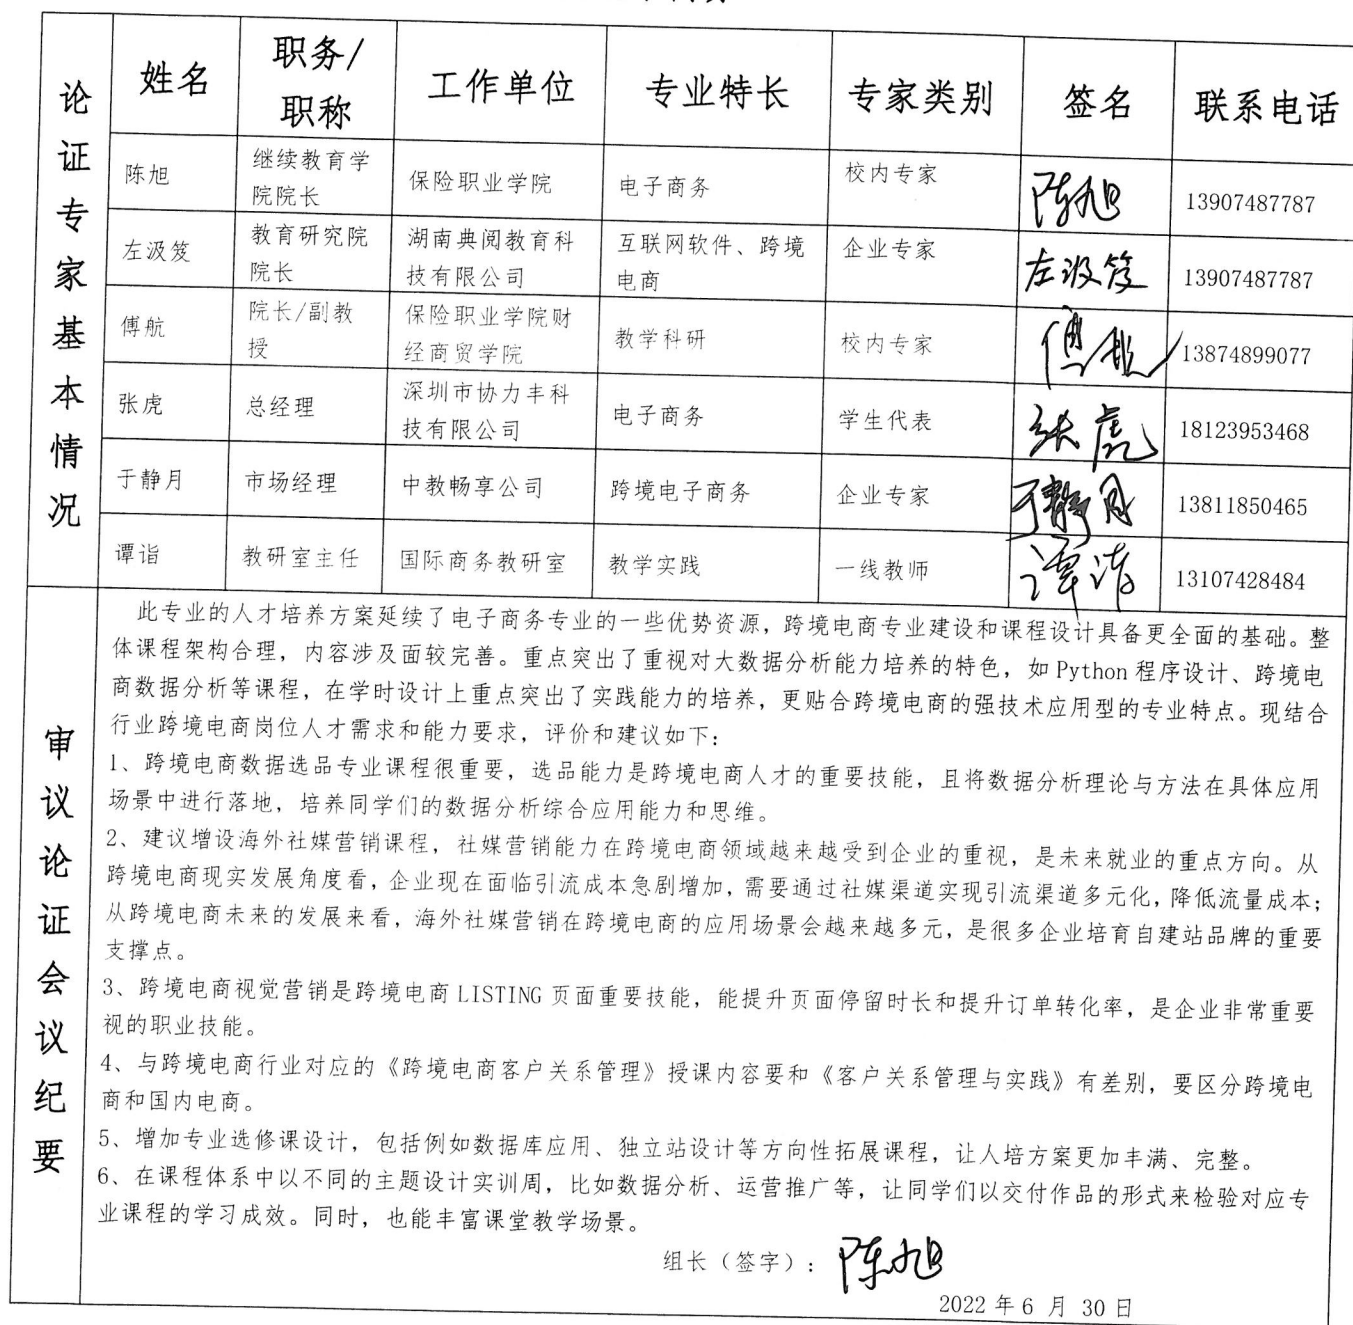 论证专家基本情况
姓名 职务/职称 工作单位 专业特长 专家类别 签名 联系电话
陈旭 继续教育学院院长 保险职业学院 电子商务 校内专家 陈旭 13907487787
左汲笈 教育研究院院长 湖南典阅教育科技有限公司 互联网软件、跨境电商 企业专家 左汲笈 13907487787
傅航 院长/副教授 保险职业学院财经商贸学院 教学科研 校内专家 傅航 13874899077
张虎 总经理 深圳市协力丰科技有限公司 电子商务 学生代表 张虎 18123953468
于静月 市场经理 中教畅享公司 跨境电子商务 企业专家 于静月 13811850465
谭诣 教研室主任 国际商务教研室 教学实践 一线教师 谭诣 13107428484
审议论证会议纪要
此专业的人才培养方案延续了电子商务专业的一些优势资源，跨境电商专业建设和课程设计具备更全面的基础。整
体课程架构合理，内容涉及面较完善。重点突出了重视对大数据分析能力培养的特色，如 Python 程序设计、跨境电
商数据分析等课程，在学时设计上重点突出了实践能力的培养，更贴合跨境电商的强技术应用型的专业特点。现结合
行业跨境电商岗位人才需求和能力要求，评价和建议如下：
1、跨境电商数据选品专业课程很重要，选品能力是跨境电商人才的重要技能，且将数据分析理论与方法在具体应用
场景中进行落地，培养同学们的数据分析综合应用能力和思维。
2、建议增设海外社媒营销课程，社媒营销能力在跨境电商领域越来越受到企业的重视，是未来就业的重点方向。从
跨境电商现实发展角度看，企业现在面临引流成本急剧增加，需要通过社媒渠道实现引流渠道多元化，降低流量成本；
从跨境电商未来的发展来看，海外社媒营销在跨境电商的应用场景会越来越多元，是很多企业培育自建站品牌的重要
支撑点。
3、跨境电商视觉营销是跨境电商 LISTING 页面重要技能，能提升页面停留时长和提升订单转化率，是企业非常重要
视的职业技能。
4、与跨境电商行业对应的《跨境电商客户关系管理》授课内容要和《客户关系管理与实践》有差别，要区分跨境电
商和国内电商。
5、增加专业选修课设计，包括例如数据库应用、独立站设计等方向性拓展课程，让人培方案更加丰满、完整。
6、在课程体系中以不同的主题设计实训周，比如数据分析、运营推广等，让同学们以交付作品的形式来检验对应专
业课程的学习成效。同时，也能丰富课堂教学场景。
组长（签字）：陈旭
2022 年 6 月 30 日